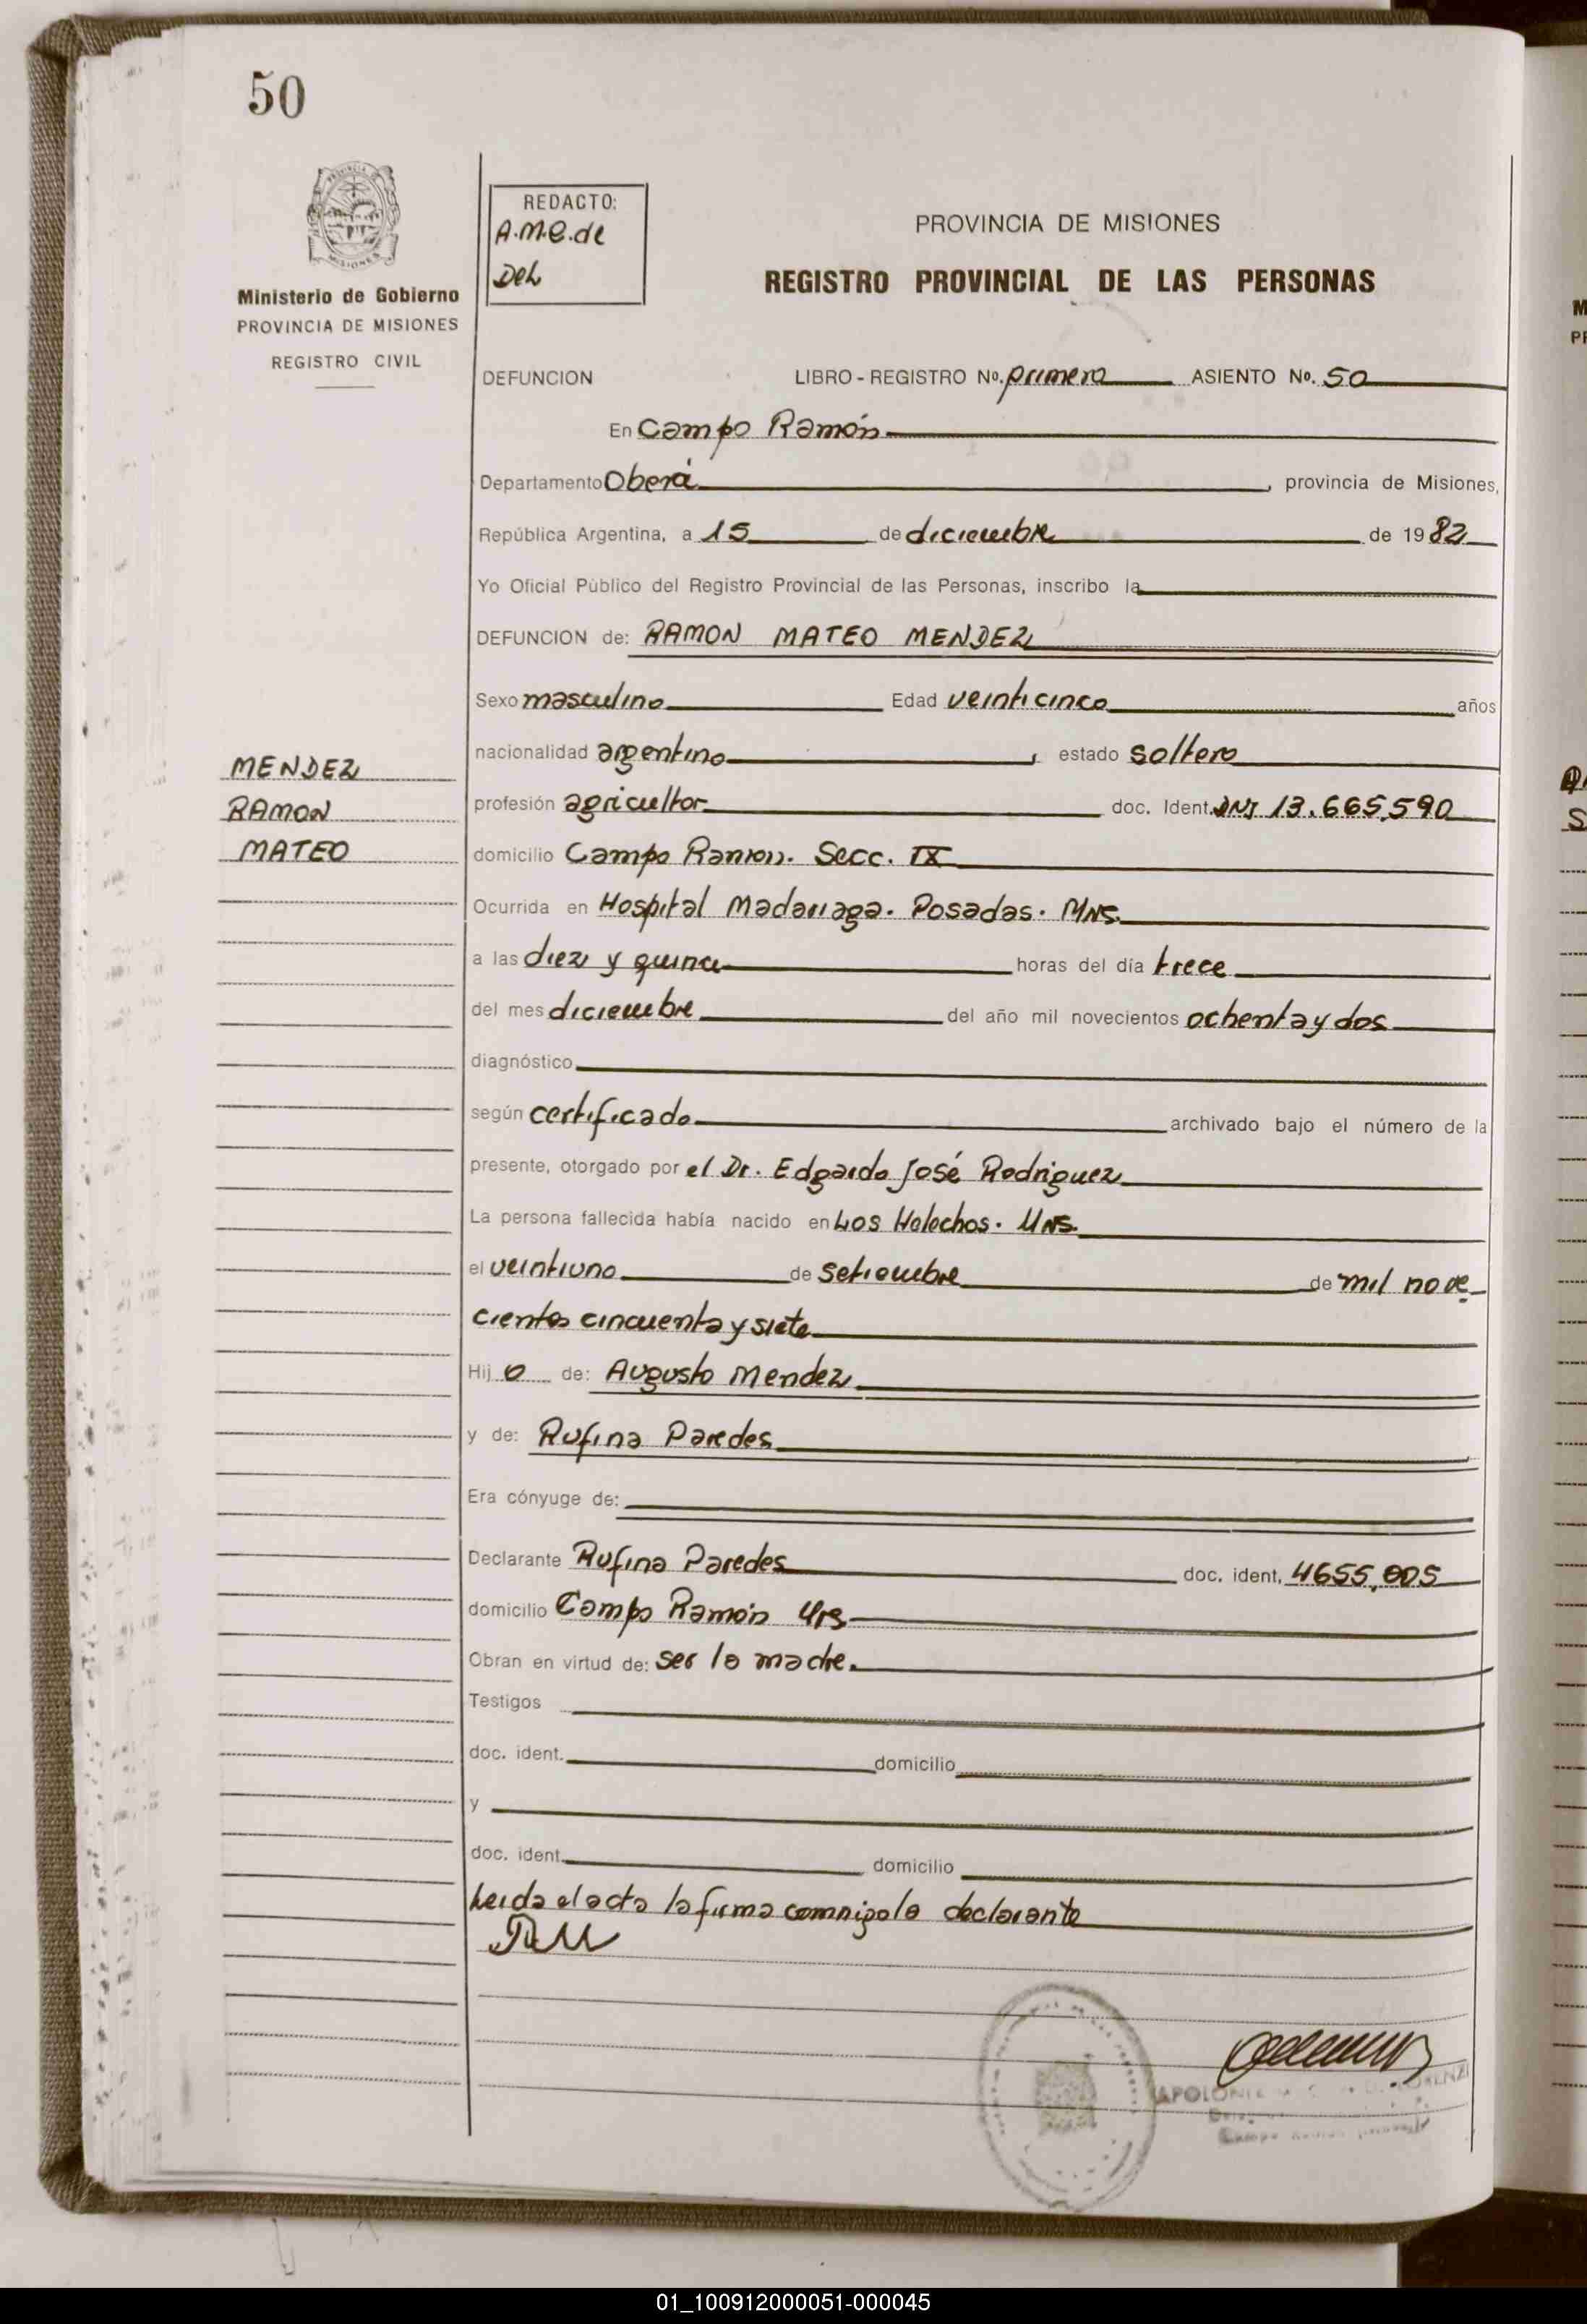 50
PROVINCIA DE
MISIONES
Ministerio de Gobierno
PROVINCIA DE MISIONES
REGISTRO CIVIL
REDACTO:
A.M.C.de
Del
PROVINCIA DE MISIONES
REGISTRO PROVINCIAL DE LAS PERSONAS
DEFUNCION LIBRO - REGISTRO No. primero ASIENTO No. 50
En Campo Ramón
Departamento Oberá, provincia de Misiones,
República Argentina, a 15 de diciembre de 1982
Yo Oficial Público del Registro Provincial de las Personas, inscribo la
DEFUNCION de: RAMON MATEO MENDEZ
Sexo masculino Edad veinticinco años
nacionalidad argentino, estado soltero
MENDEZ
RAMON
MATEO
profesión agricultor doc. Ident. DNI 13.665,590
domicilio Campo Ramon. Secc. IX
Ocurrida en Hospital Madariaga. Posadas. MNS.
a las diez y quince horas del día trece
del mes diciembre del año mil novecientos ochenta y dos
diagnóstico
según certificado archivado bajo el número de la
presente, otorgado por el Dr. Edgardo José Rodriguez
La persona fallecida había nacido en Los Helechos. MNS.
el veintiuno de setiembre de mil nove
cientos cincuenta y siete
Hij o de: Augusto Mendez
y de: Rufina Paredes
Era cónyuge de:
Declarante Rufina Paredes doc. ident. 4655,005
domicilio Campo Ramón
Obran en virtud de: ser la madre.
Testigos
doc. ident. domicilio
y
doc. ident. domicilio
Leida el acta la firma conmigo la declarante
RM
APOLONIA
Campo Ramon
01_100912000051-000045